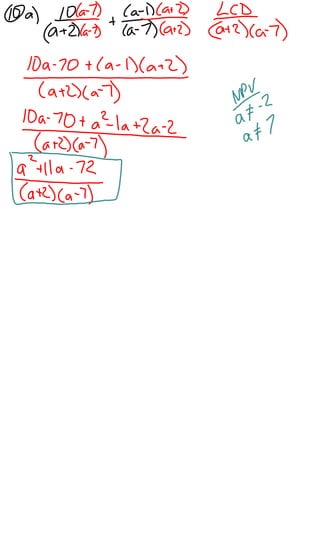 10a) 10(a-7)/(a+2)(a-7) + (a-1)(a+2)/(a-7)(a+2) LCD (a+2)(a-7)
10a-70+(a-1)(a+2)/(a+2)(a-7)
NPV
a≠-2
a≠7
10a-70+a²-1a+2a-2/(a+2)(a-7)
a²+11a-72/(a+2)(a-7)